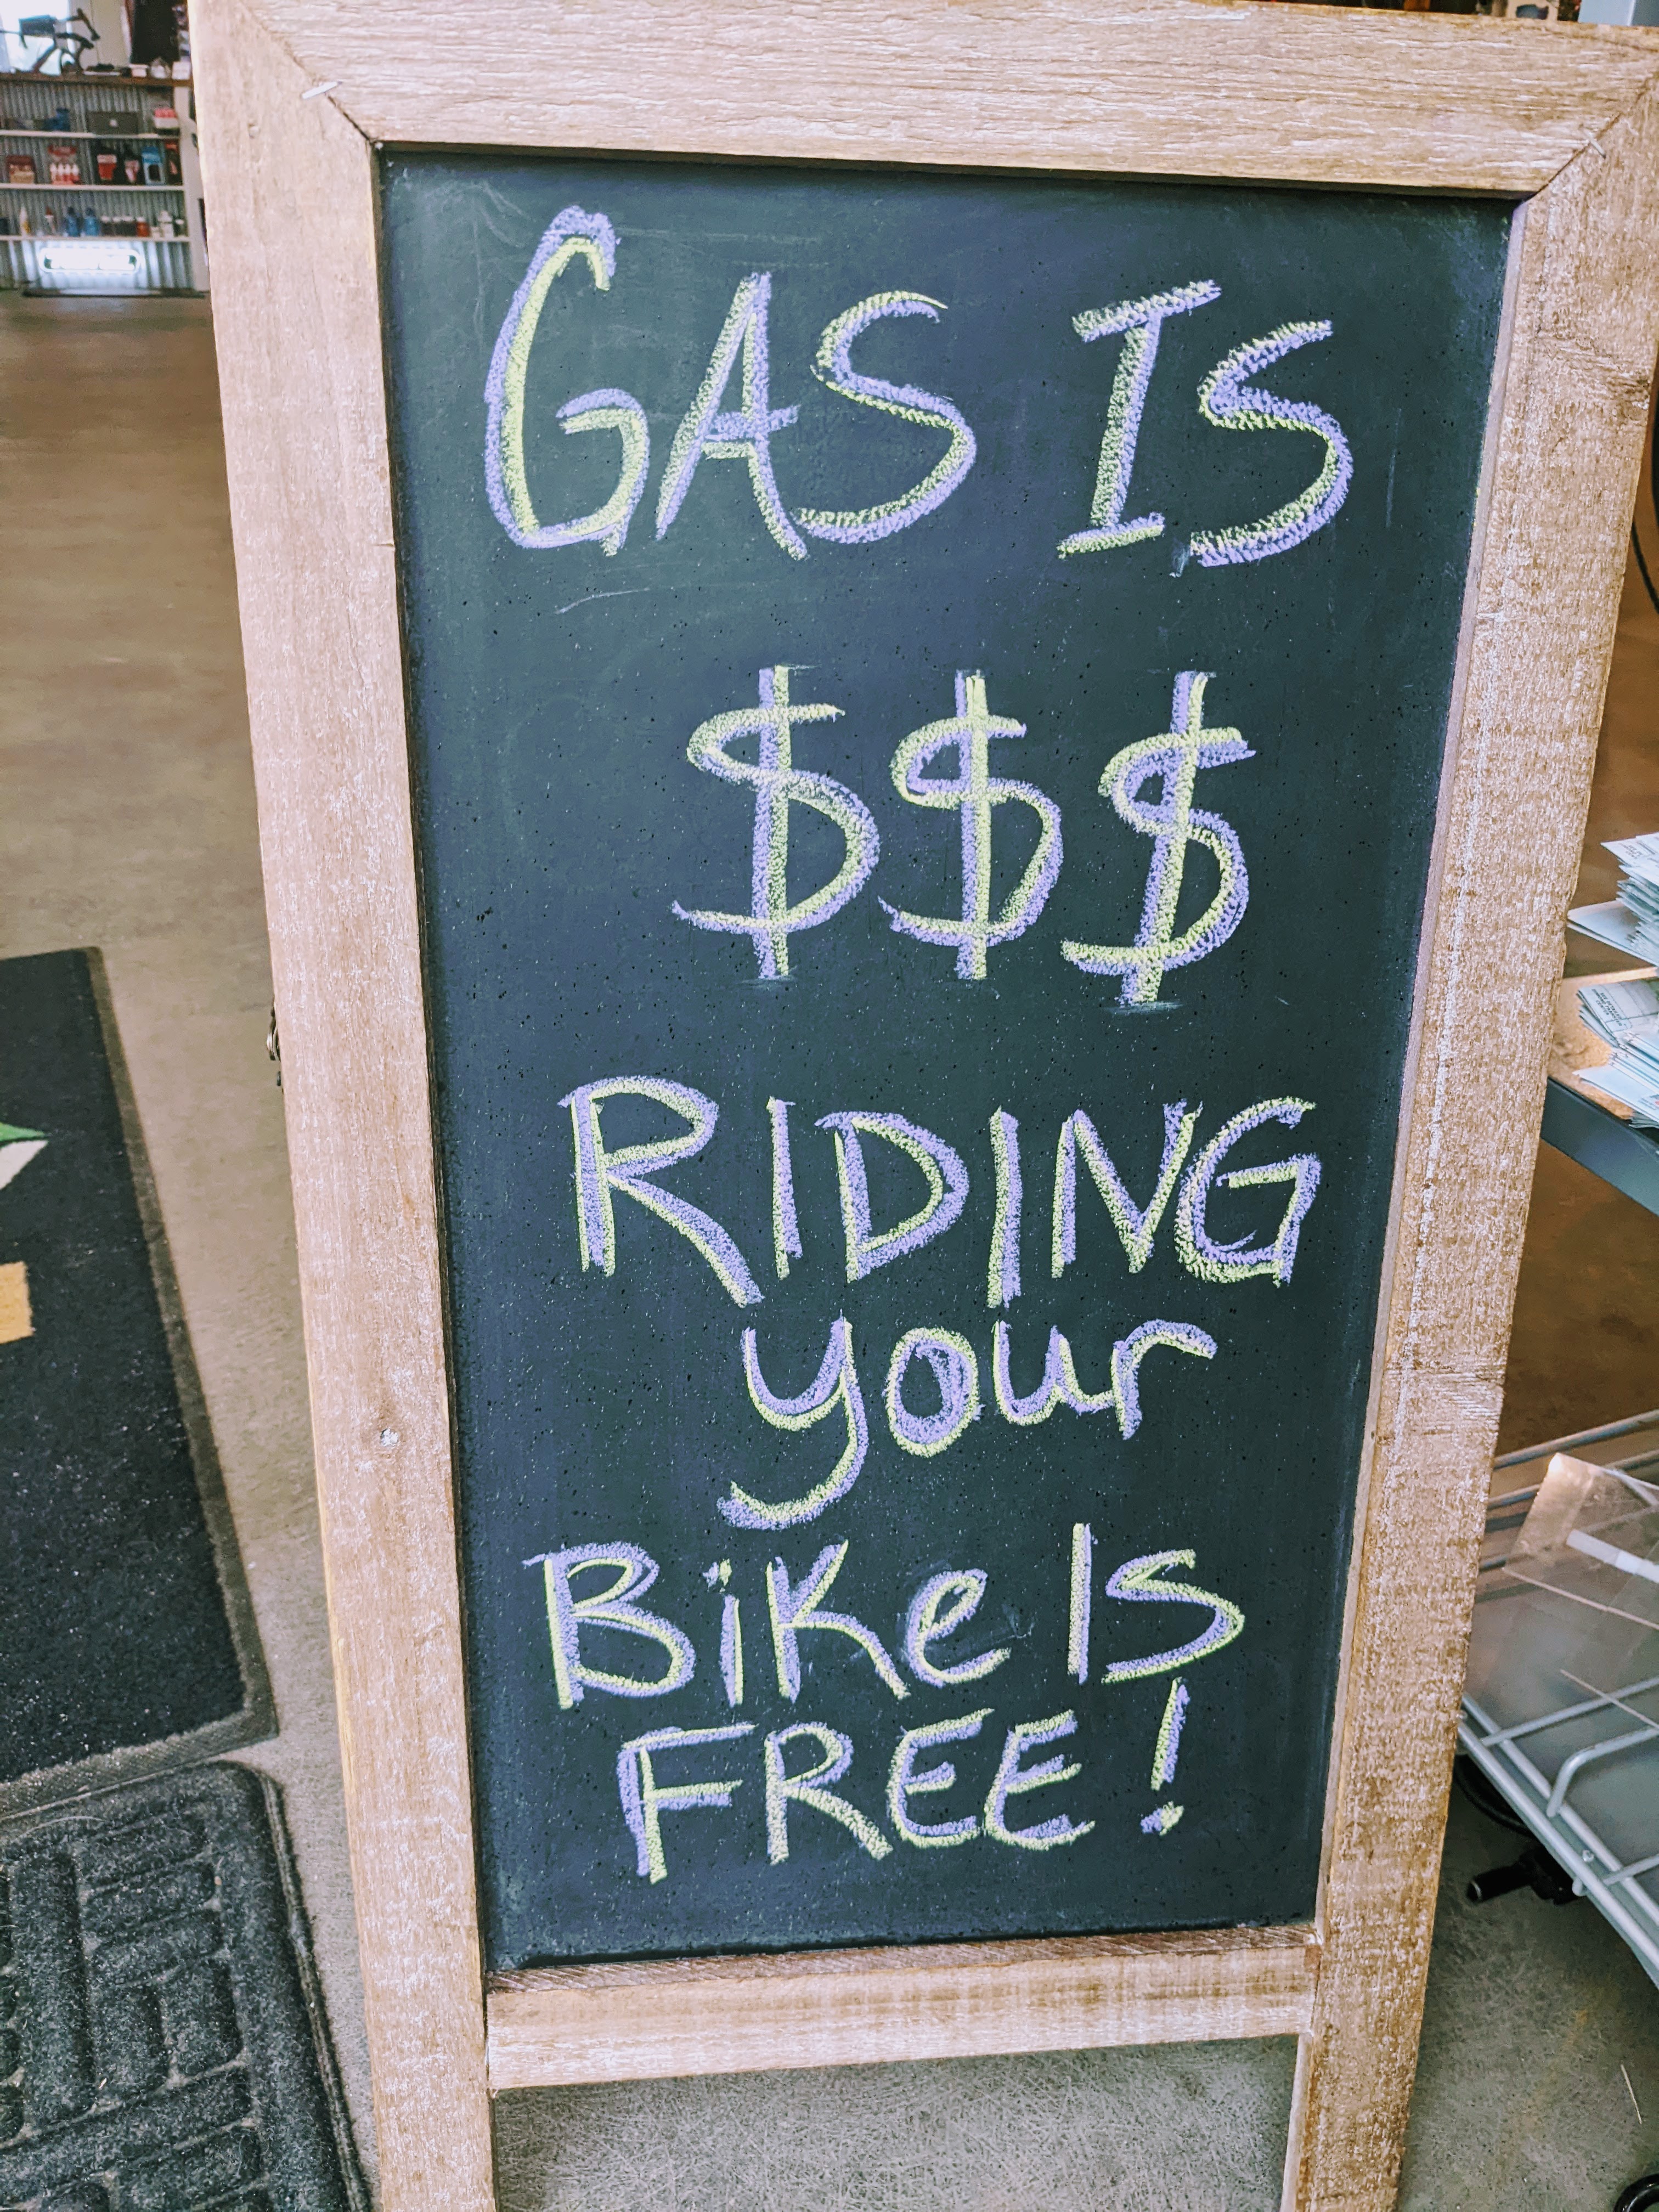 GAS IS
$$$
RIDING
your
BiKe IS
FREE!